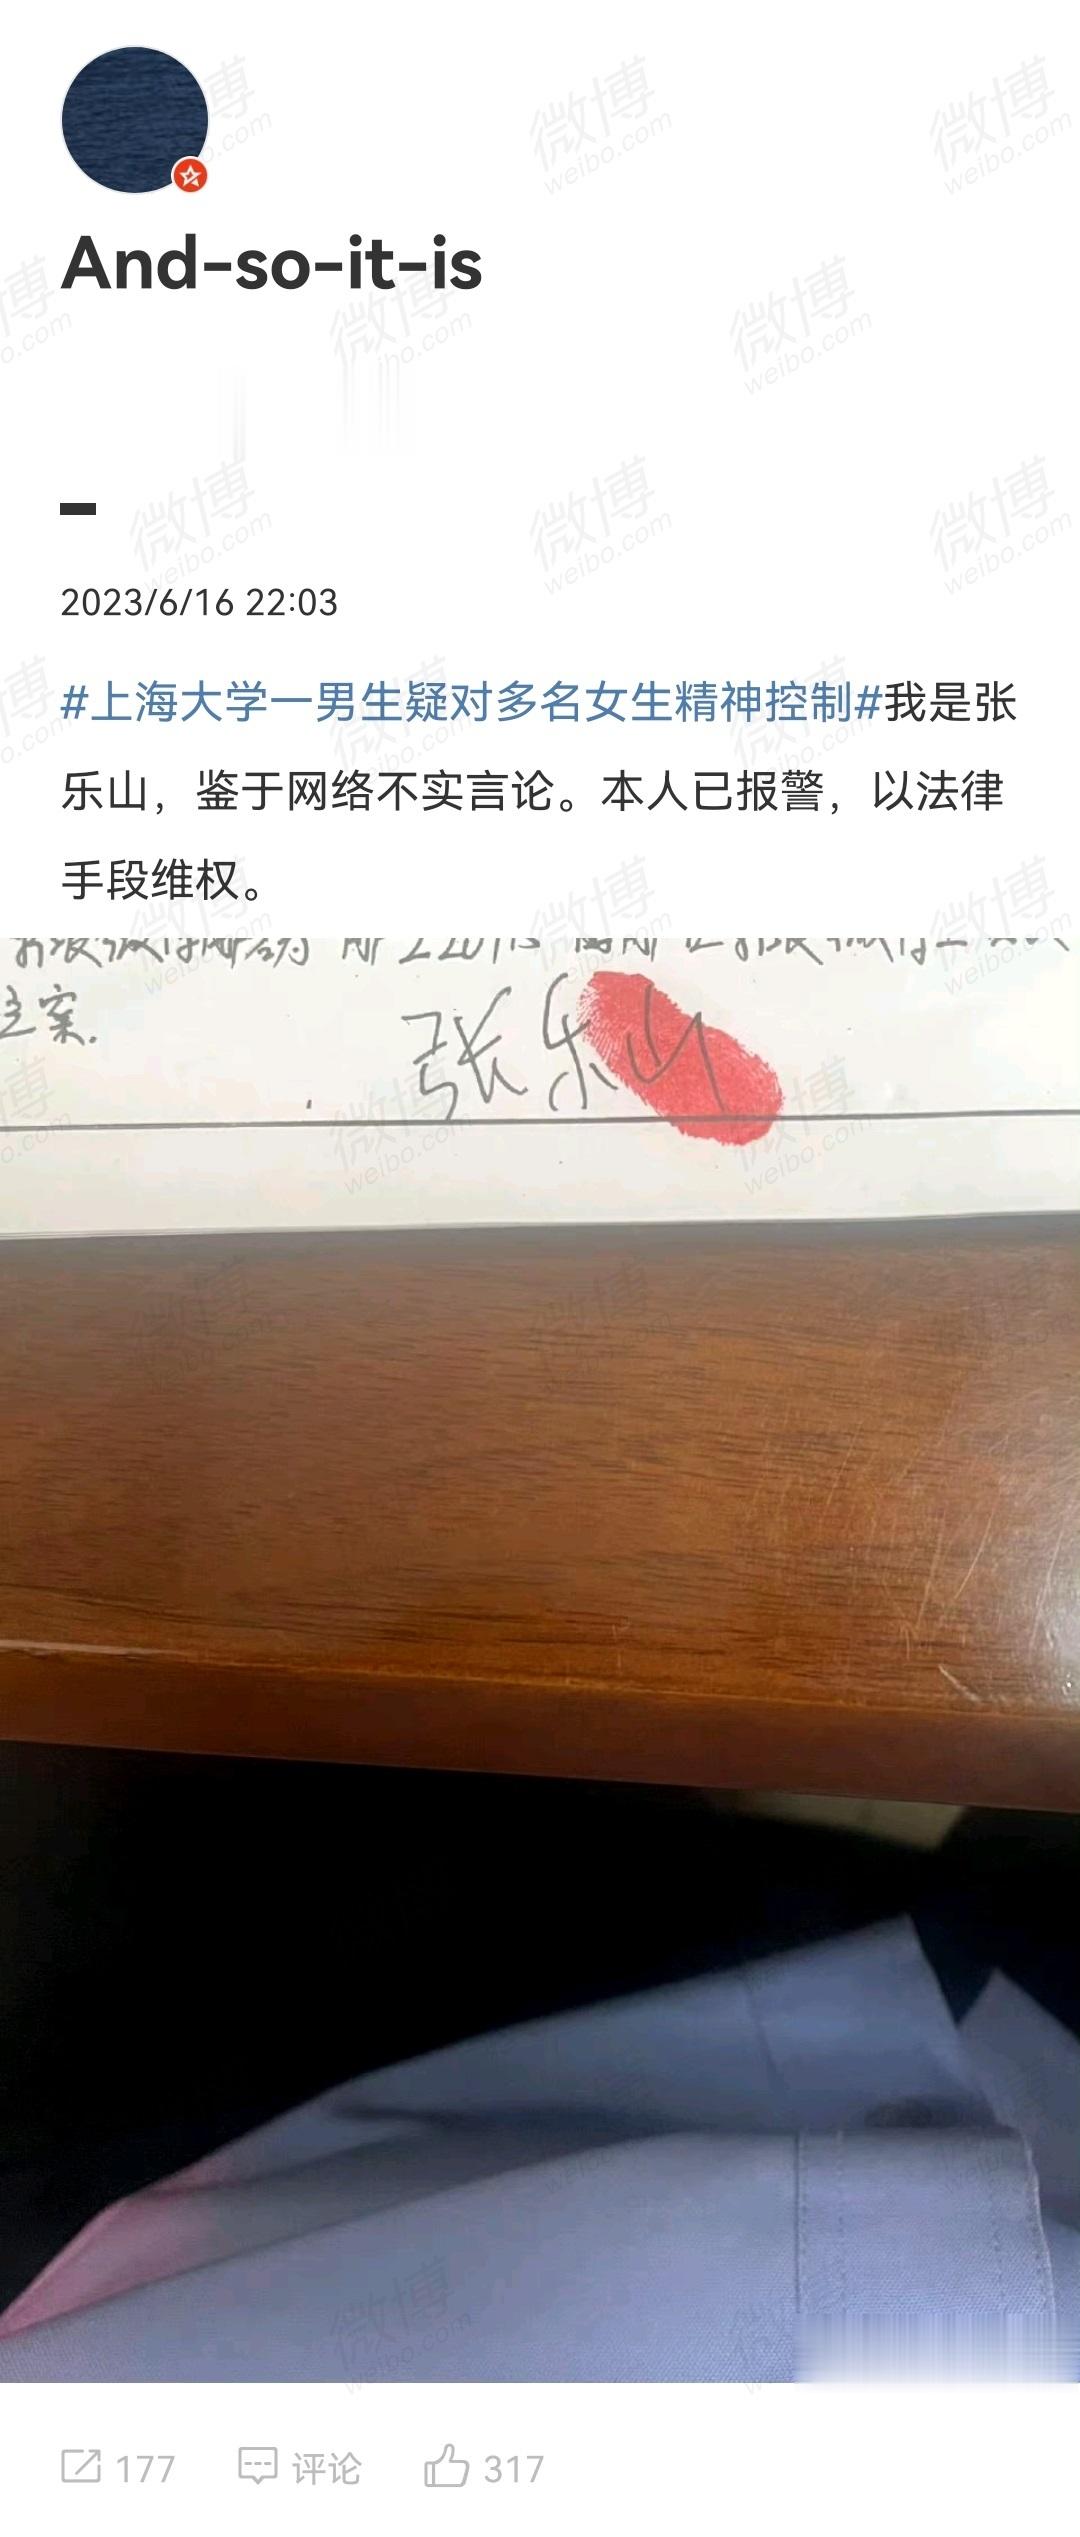 And-so-it-is
2023/6/16 22:03
#上海大学一男生疑对多名女生精神控制#我是张
乐山，鉴于网络不实言论。本人已报警，以法律
手段维权。
立案.
张乐山
177 评论 317
微博
weibo.com